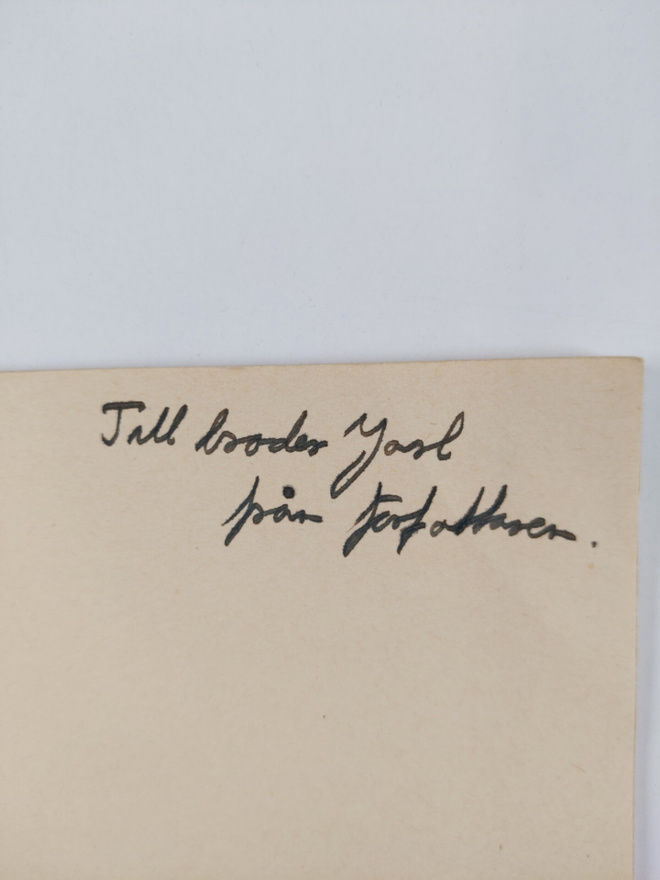 Till broder Jarl
från författaren.